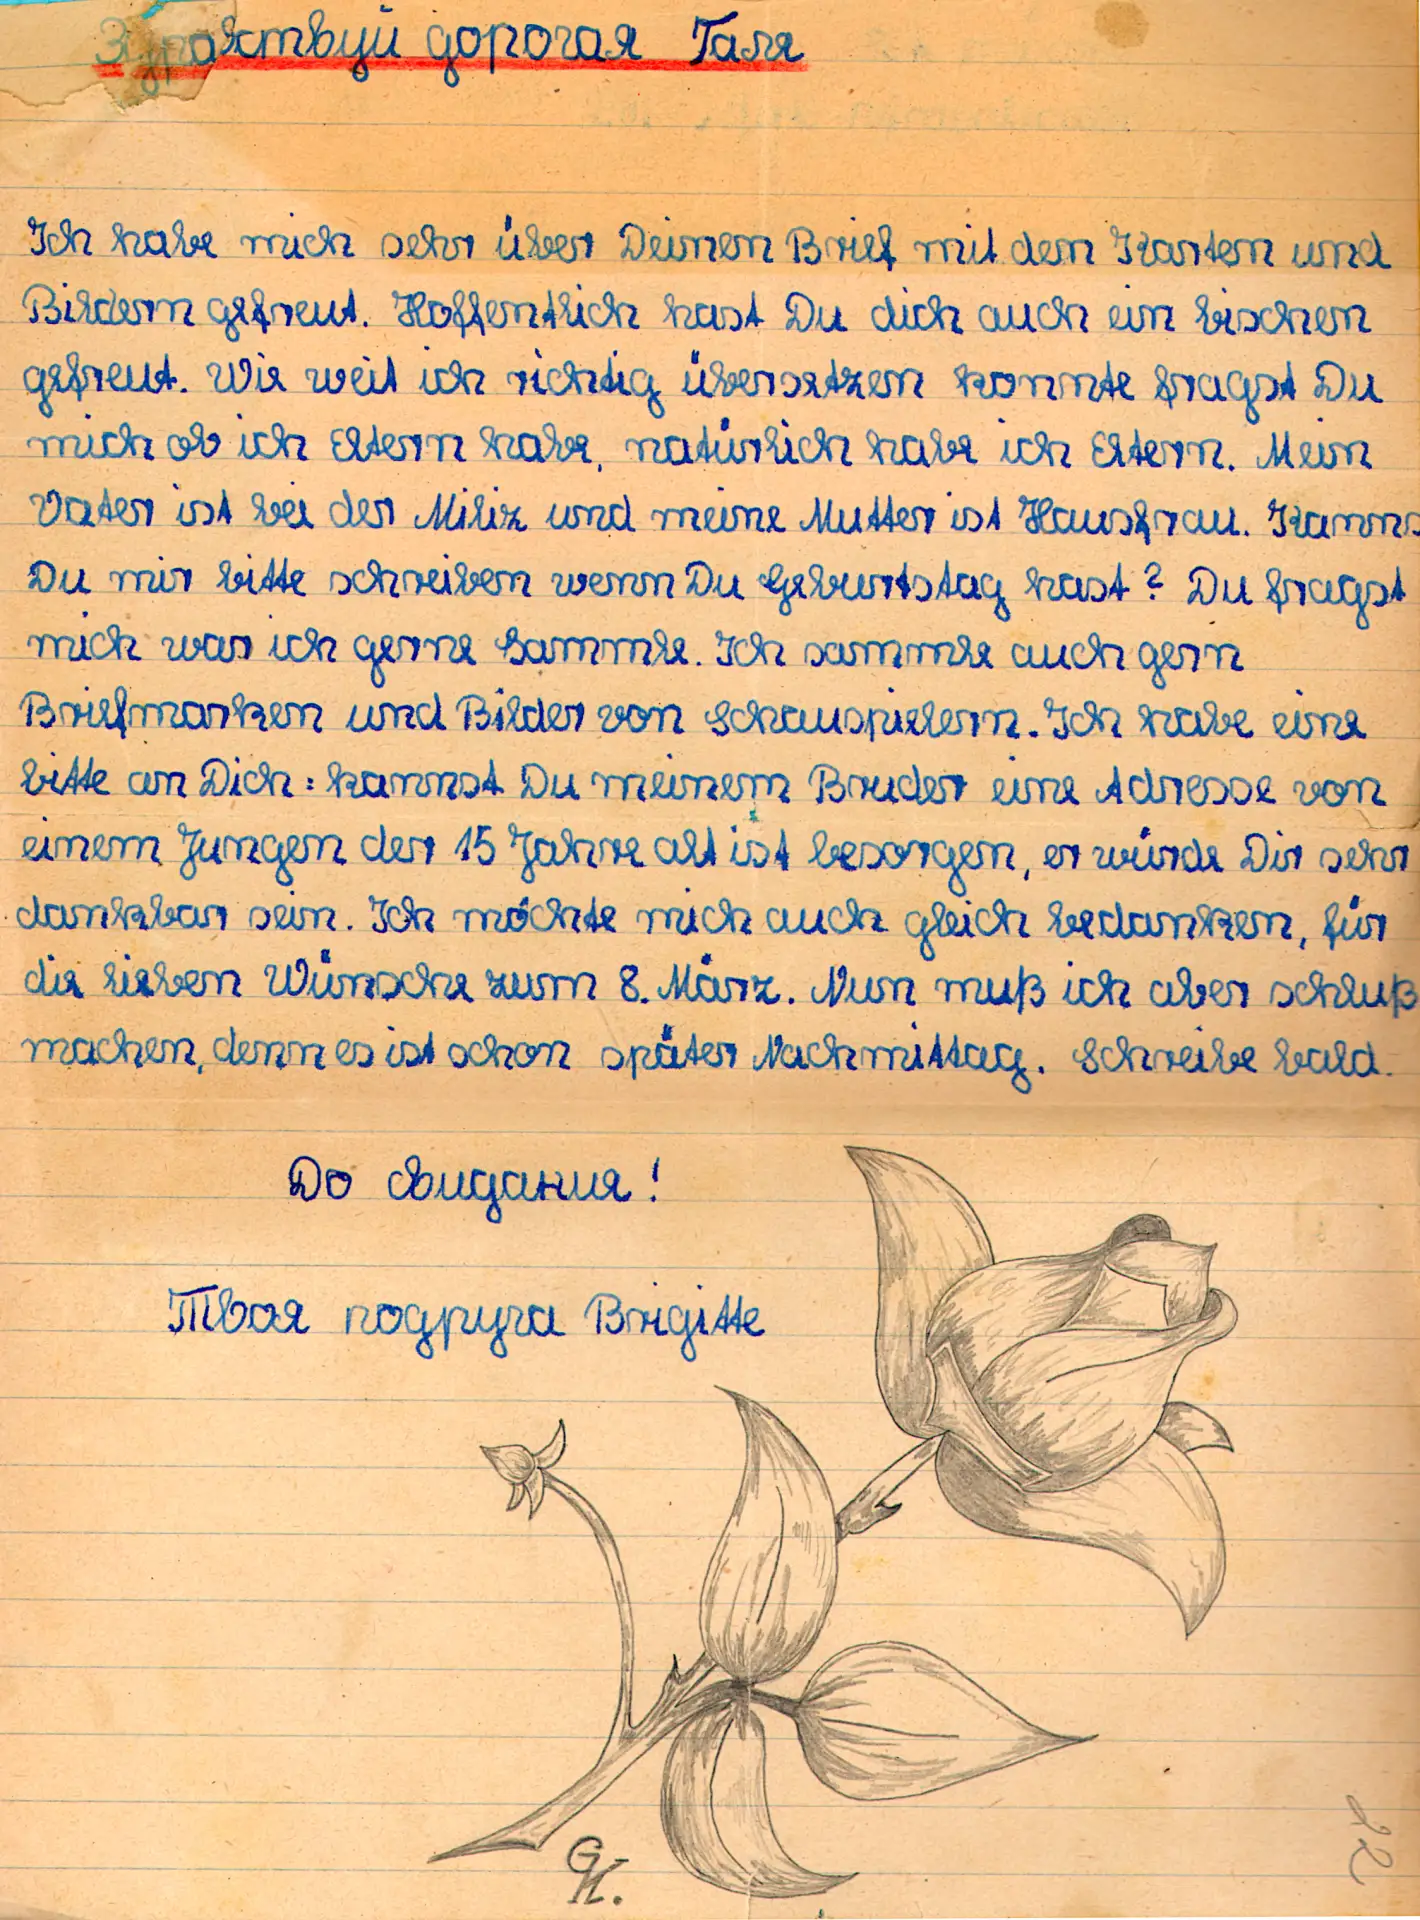 Здравствуй дорогая Галя
Ich habe mich sehr über Deinen Brief mit den Karten und
Bildern gefreut. Hoffentlich hast Du dich auch ein bischen
gefreut. Wie weit ich richtig übersetzen konnte fragst Du
mich ob ich Eltern habe, natürlich habe ich Eltern. Mein
Vater ist bei der Miliz und meine Mutter ist Hausfrau. Kanns
Du mir bitte schreiben wenn Du Geburtstag hast? Du fragst
mich was ich gerne Sammle. Ich sammle auch gern
Briefmarken und Bilder von Schauspielern. Ich habe eine
bitte an Dich: kannst Du meinem Bruder eine Adresse von
einem Jungen der 15 Jahre alt ist besorgen, er würde Dir sehr
dankbar sein. Ich möchte mich auch gleich bedanken, für
die lieben Wünsche zum 8. März. Nun muß ich aber schluß
machen, denn es ist schon später Nachmittag. Schreibe bald.
До свидания!
Твоя подруга Brigitte
GK.
22